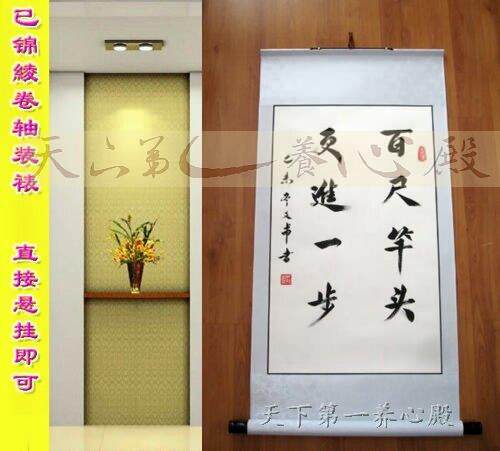 已锦綾卷轴装裱
直接悬挂即可
天下第一養心殿
百尺竿头
更進一步
乙未
书
天下第一养心殿